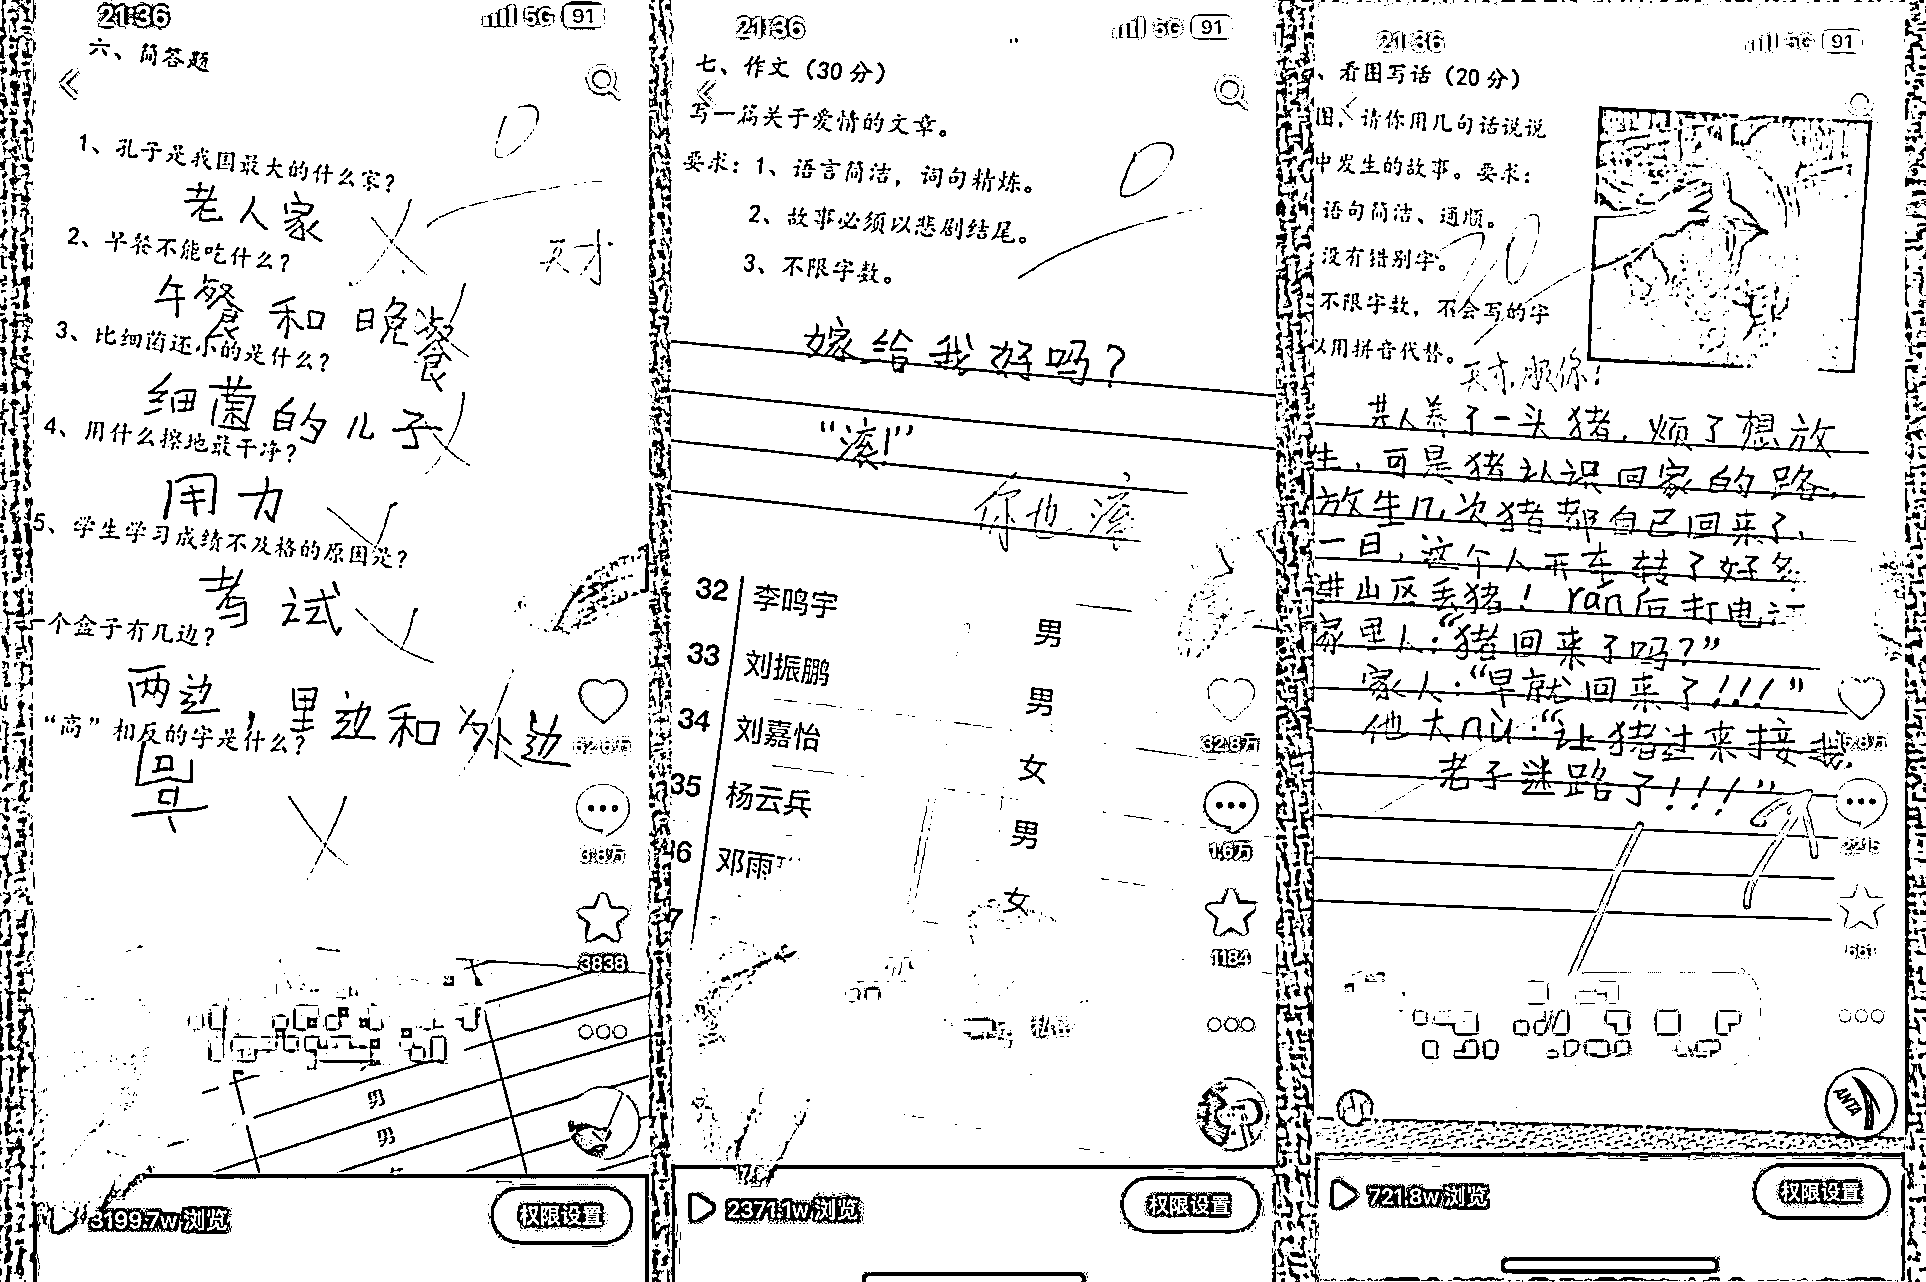 21:36
5G 91
六、简答题
1、孔子是我国最大的什么家?
老人家
2、早餐不能吃什么?
天才
午餐和晚餐
3、比细菌还小的是什么?
细菌的儿子
4、用什么擦地最干净?
用力
5、学生学习成绩不及格的原因是?
考试
一个盒子有几边?
两边,里边和外边
“高”相反的字是什么?
3.8万
3838
男
男
3199.7w浏览
权限设置
21:36
5G 91
七、作文(30分)
0
写一篇关于爱情的文章。
要求:1、语言简洁,词句精炼。
2、故事必须以悲剧结尾。
3、不限字数。
嫁给我好吗?
“滚!”
你也滚
32 李鸣宇 男
33 刘振鹏 男
34 刘嘉怡 女
35 杨云兵 男
邓雨 女
32.8万
1.6万
1184
2371.1w浏览
权限设置
21:36
5G 91
、看图写话(20分)
图,请你用几句话说说
中发生的故事。要求:
语句简洁、通顺。
没有错别字。
20
不限字数,不会写的字
以用拼音代替。
天才,服你!
某人养了一头猪,烦了想放
生,可是猪认识回家的路,
放生几次猪都自己回来了.
一日,这个人开车转了好多
进山区丢猪!rán后打电话
家里人:“猪回来了吗?”
家人:“早就回来了!!!”
他大nù:“让猪过来接我,
老子迷路了!!!”
661
ANTA
721.8w浏览
权限设置